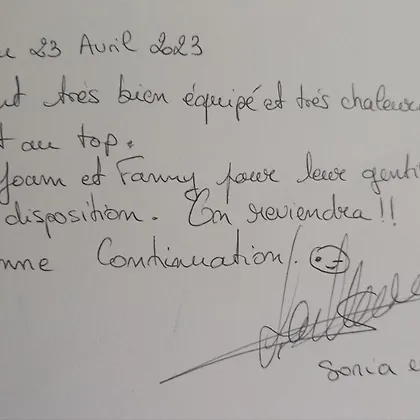 23 Avril 2023
très bien équipé et très chaleur
au top.
Yoann et Fanny pour leur gentil
disposition. On reviendra !!
nne Continuation !
Sonia e